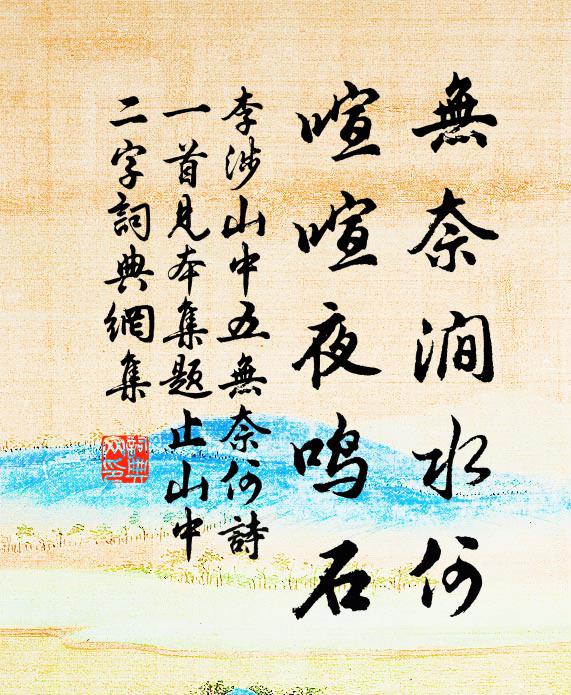 無奈澗水何
喧喧夜鳴石
李涉山中五無奈何詩
一首見本集題止山中
二字詞典網集